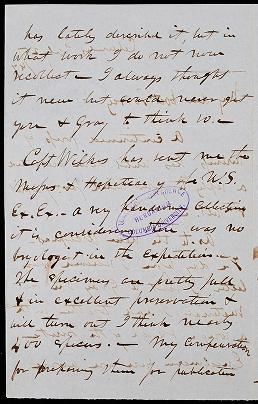 has lately described it, but in
what work I do not now
recollect — I always thought
it new but could never get
you & Gray to think so. —
Capt Wilkes has sent me the
Mosses & Hepaticae of the U.S.
Ex. Ex. — a very handsome collection
it is considering there was no
bryologist in the expedition. —
The specimens are pretty full
& in excellent preservation &
will turn out I think nearly
400 species. — My compensation
for preparing them for publication